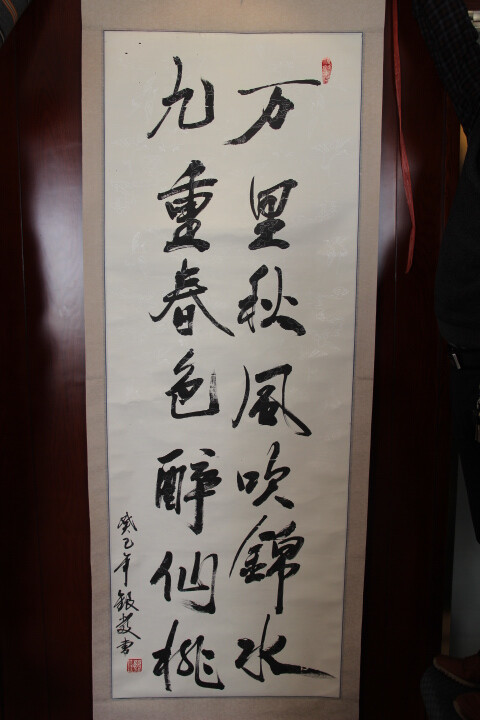 万里秋風吹錦水
九重春色醉仙桃
癸巳年銀发書